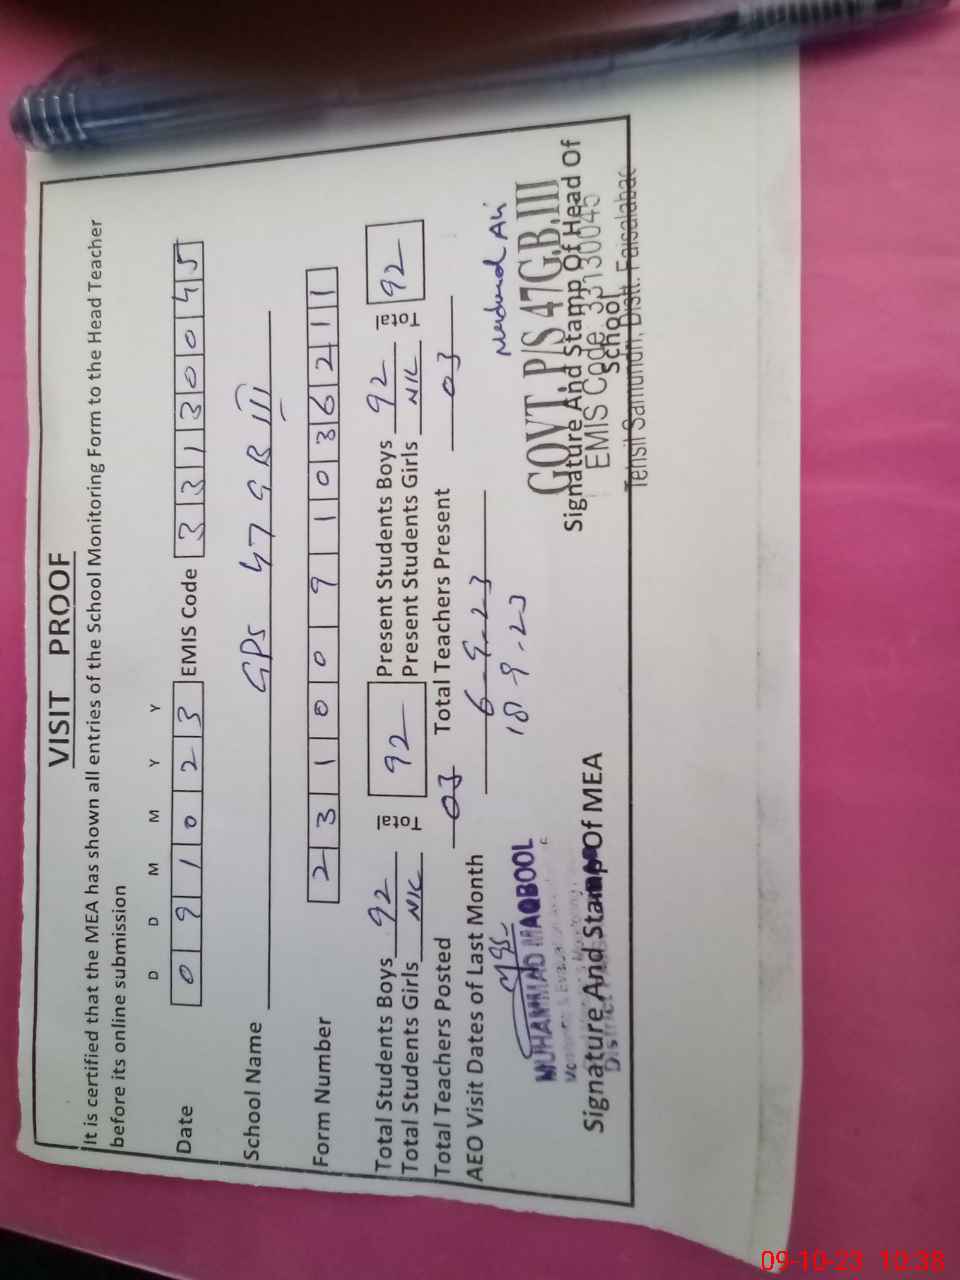 VISIT PROOF
It is certified that the MEA has shown all entries of the School Monitoring Form to the Head Teacher
before its online submission
D D M M Y Y
Date 0 9 1 0 2 3 EMIS Code 3 3 1 3 0 0 4 5
School Name GPS 47 GB III
Form Number 2 3 1 0 0 9 1 1 0 3 6 2 1 1
Total Students Boys 92 Total 92 Present Students Boys 92 Total 92
Total Students Girls NIL Present Students Girls NIL
Total Teachers Posted 03 Total Teachers Present 03
AEO Visit Dates of Last Month 6-9-23
18-9-23
MUHAMMAD MAQBOOL
Signature And Stamp Of MEA
GOVT. P/S 47G.B.III
Signature And Stamp Of Head Of
School
EMIS Code: 33130045
Tehsil Samundri, Distt. Faisalabad
09-10-23 10:38